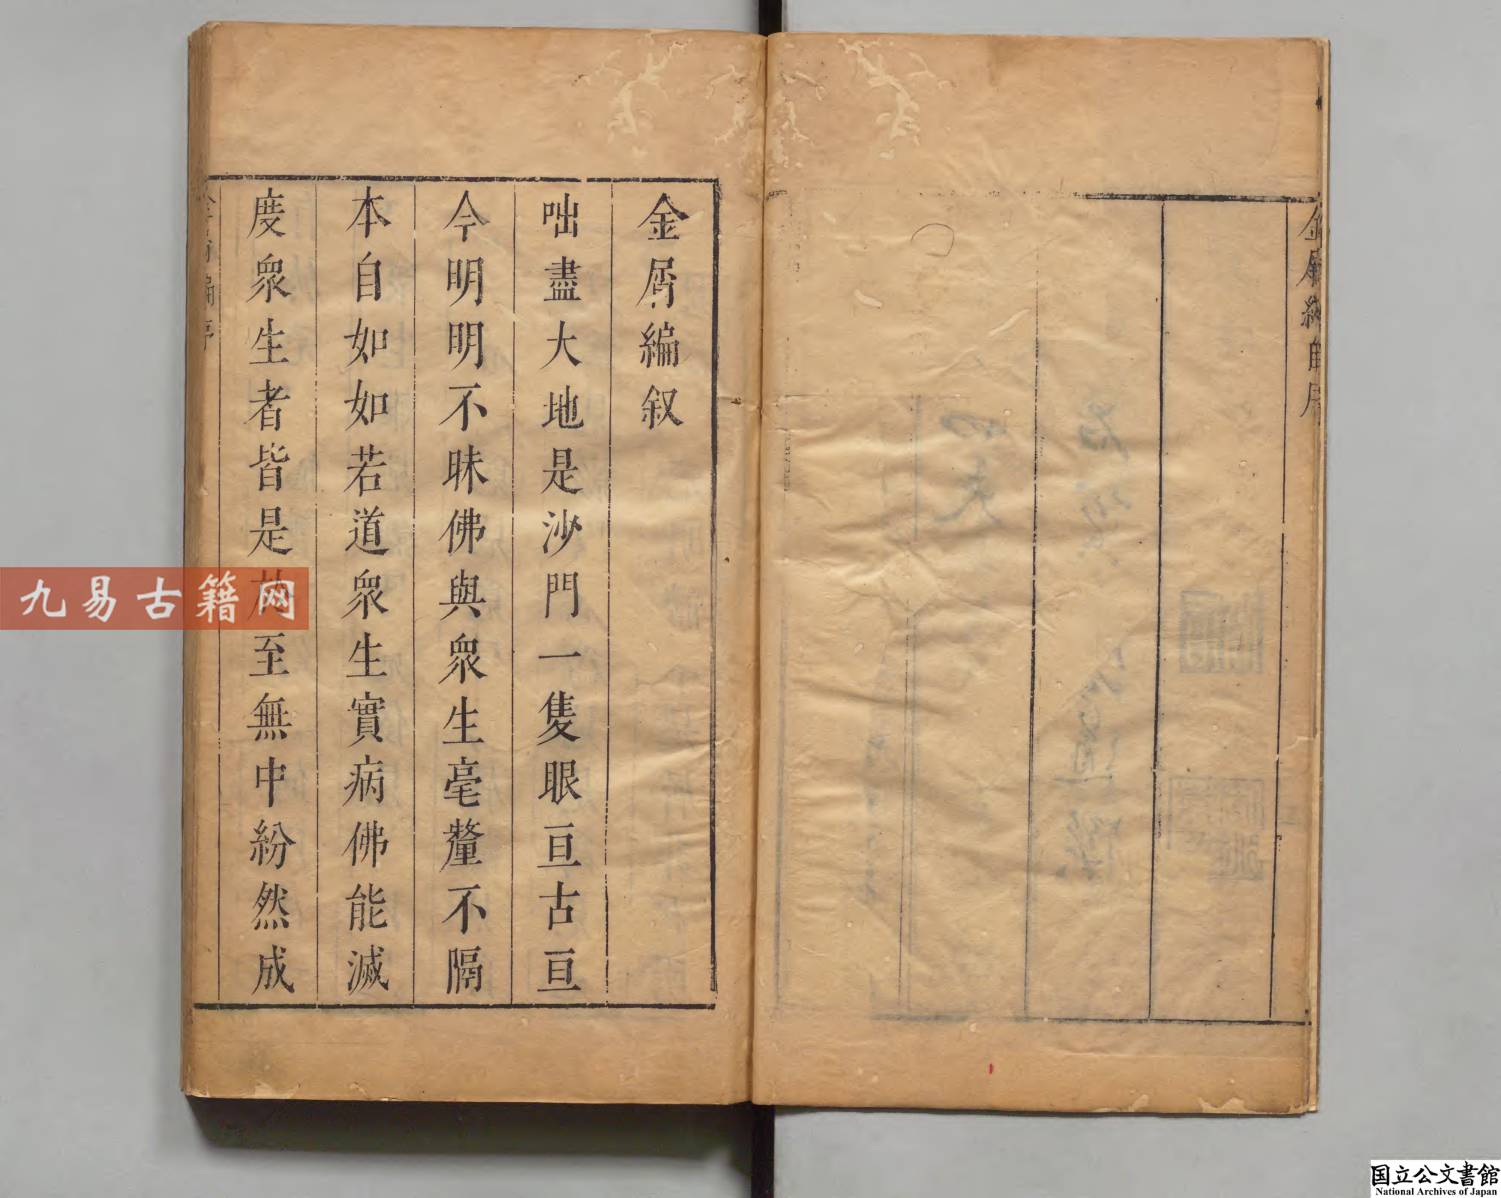 金屑編自序
金屑編叙
咄盡大地是沙門一隻眼亘古亘
今明明不昧佛與衆生毫釐不隔
本自如如若道衆生實病佛能滅
度衆生者皆是於至無中紛然成
金屑編序
九易古籍网
国立公文書館
National Archives of Japan